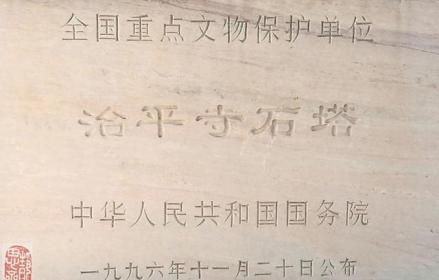 全国重点文物保护单位
治平寺石塔
中华人民共和国国务院
一九九六年十一月二十日公布